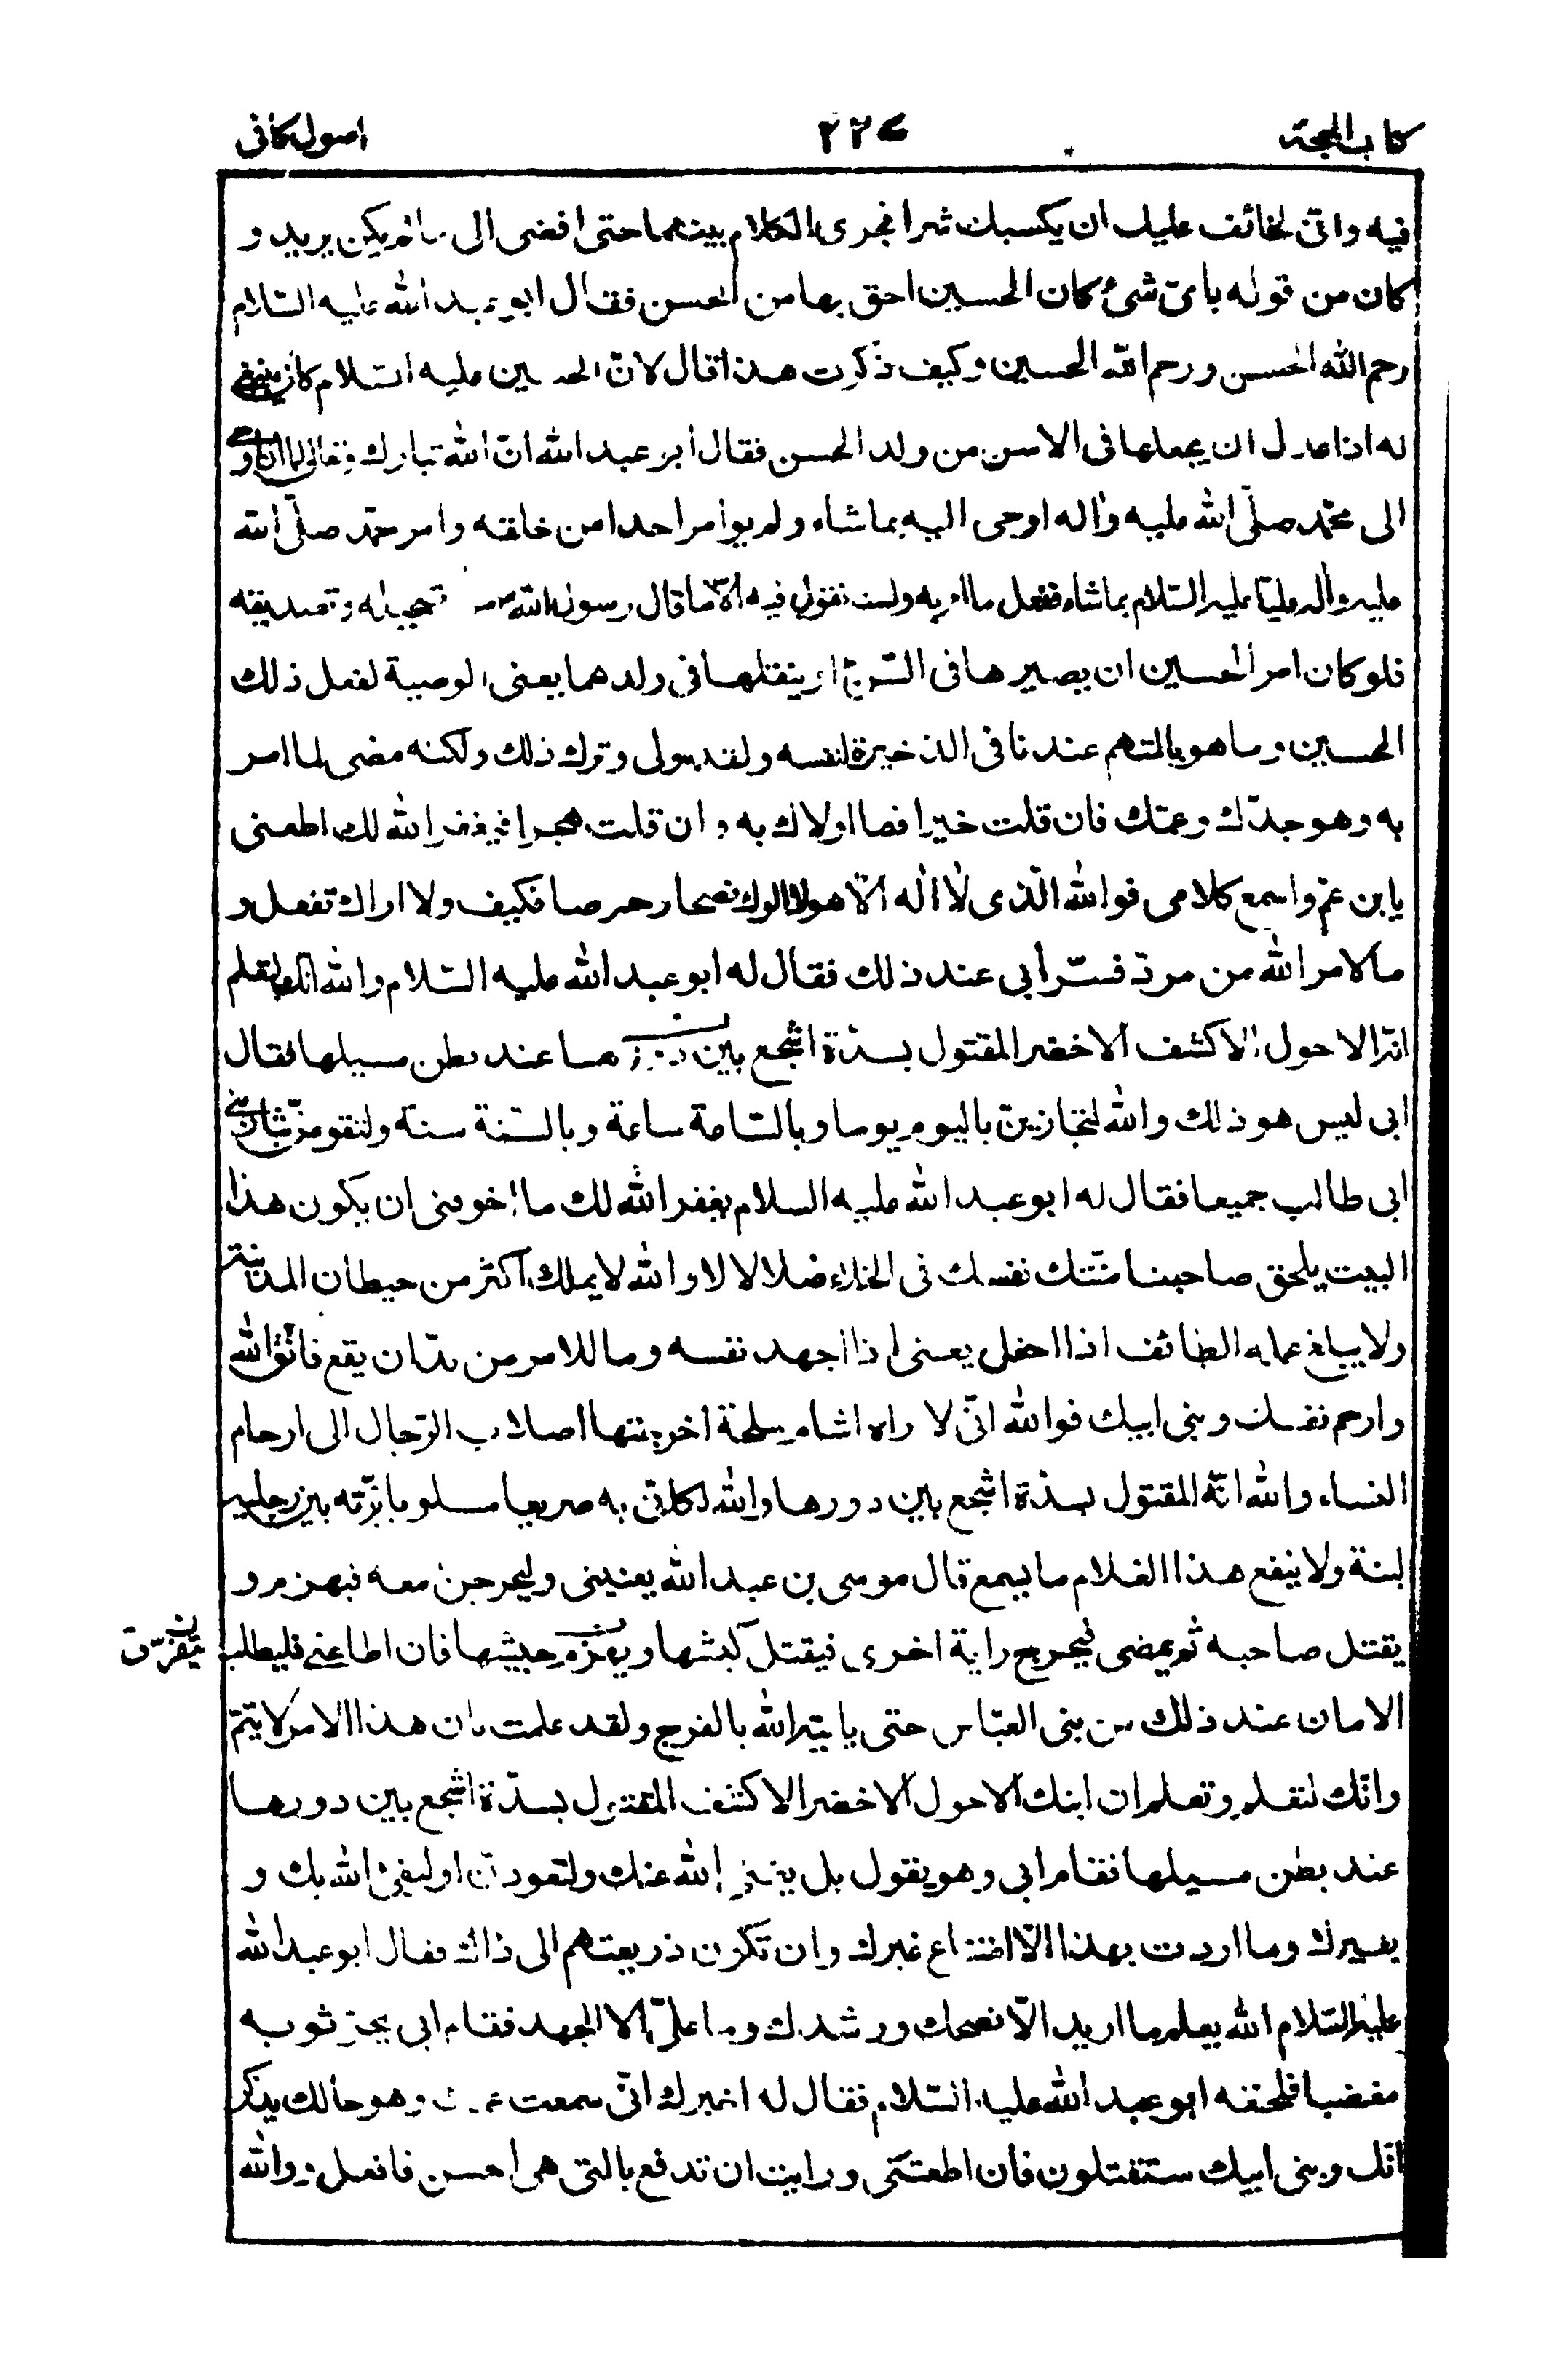 كتاب الحجة ٢٢٧ اصول كافى
فيه وانى لخائف عليك ان يكسبك شرا فجرى الكلام بينهما حتى افضى الى ما لم يكن يريد و
كان من قوله باى شئ كان الحسين احق بها من الحسن فقال ابو عبد الله عليه السلام
رحم الله الحسن ورحم الله الحسين وكيف ذكرت هذا قال لان الحسين عليه السلام كان ينبغى
له اذا عدل ان يجعلها فى الاسن من ولد الحسن فقال ابو عبد الله ان الله تبارك وتعالى لما ان اوحى
الى محمد صلى الله عليه واله اوحى اليه بما شاء ولم يوامر احدا من خلقه وامر محمد صلى الله
عليه واله عليا عليه السلام بما شاء ففعل ما امر به ولسنا نقول فيه الا ما قال رسول الله ص من تبجيله وتصديقه
فلو كان امر الحسين ان يصيرها فى الاسن او ينقلها فى ولدهما يعنى الوصية لفعل ذلك
الحسين وما هو بالمتهم عندنا فى الذخيرة لنفسه ولقد ولى وترك ذلك ولكنه مضى لما امر
به وهو جدك وعمك فان قلت خيرا فما اولاك به وان قلت هجرا فيغفر الله لك اطعنى
يابن عم واسمع كلامى فوالله الذى لا اله الا هو لا الوك نصحا وحرصا فكيف ولا اراك تفعل و
ما لامر الله من مرد فسر ابى عند ذلك فقال له ابو عبد الله عليه السلام والله انك لتعلم
انه الاحول الاكشف الاخضر المقتول بسدة اشجع بين دورها عند بطن مسيلها فقال
ابى ليس هو ذلك والله لنجازين باليوم يوما وبالساعة ساعة وبالسنة سنة ولتقومن بثار بنى
ابى طالب جميعا فقال له ابو عبد الله عليه السلام يغفر الله لك ما اخوفنى ان يكون هذا
البيت يلحق صاحبنا منتك نفسك فى الخلاء ضلالا لا والله لا يملك اكثر من حيطان المدينة
ولا يبلغ عمله الطائف اذا احفل يعنى اذا اجهد نفسه وما للامر من بد ان يقع فاتق الله
وارحم نفسك وبنى ابيك فوالله انى لاراه اشام سلحة اخرجتها اصلاب الرجال الى ارحام
النساء والله انه المقتول بسدة اشجع بين دورها والله لكانى به صريعا مسلوبا بزته بين رجليه
لبنة ولا ينفع هذا الغلام ما يسمع قال موسى بن عبد الله يعنينى وليخرجن معه فيهزم و
يقتل صاحبه ثم يمضى فيخرج راية اخرى فيقتل كبشها ويتفرق جيشها فان اطاعنى فليطلب
يتفرق ن
الامان عند ذلك من بنى العباس حتى ياتيه الله بالفرج ولقد علمت بان هذا الامر لا يتم
وانك لتعلم وتعلم ان ابنك الاحول الاخضر الاكشف المقتول بسدة اشجع بين دورها
عند بطن مسيلها فقام ابى وهو يقول بل يغنى الله عنك ولتعودن او ليفئ الله بك و
بغيرك وما اردت بهذا الا امتناع غيرك وان تكون ذريعتهم الى ذاك فقال ابو عبد الله
عليه السلام الله يعلم ما اريد الا نصحك ورشدك وما على الا الجهد فقام ابى يجر ثوبه
مغضبا فلحقه ابو عبد الله عليه السلام فقال له اخبرك انى سمعت عمك وهو خالك يذكر
انك وبنى ابيك ستقتلون فان اطعتنى ورايت ان تدفع بالتى هى احسن فافعل ووالله